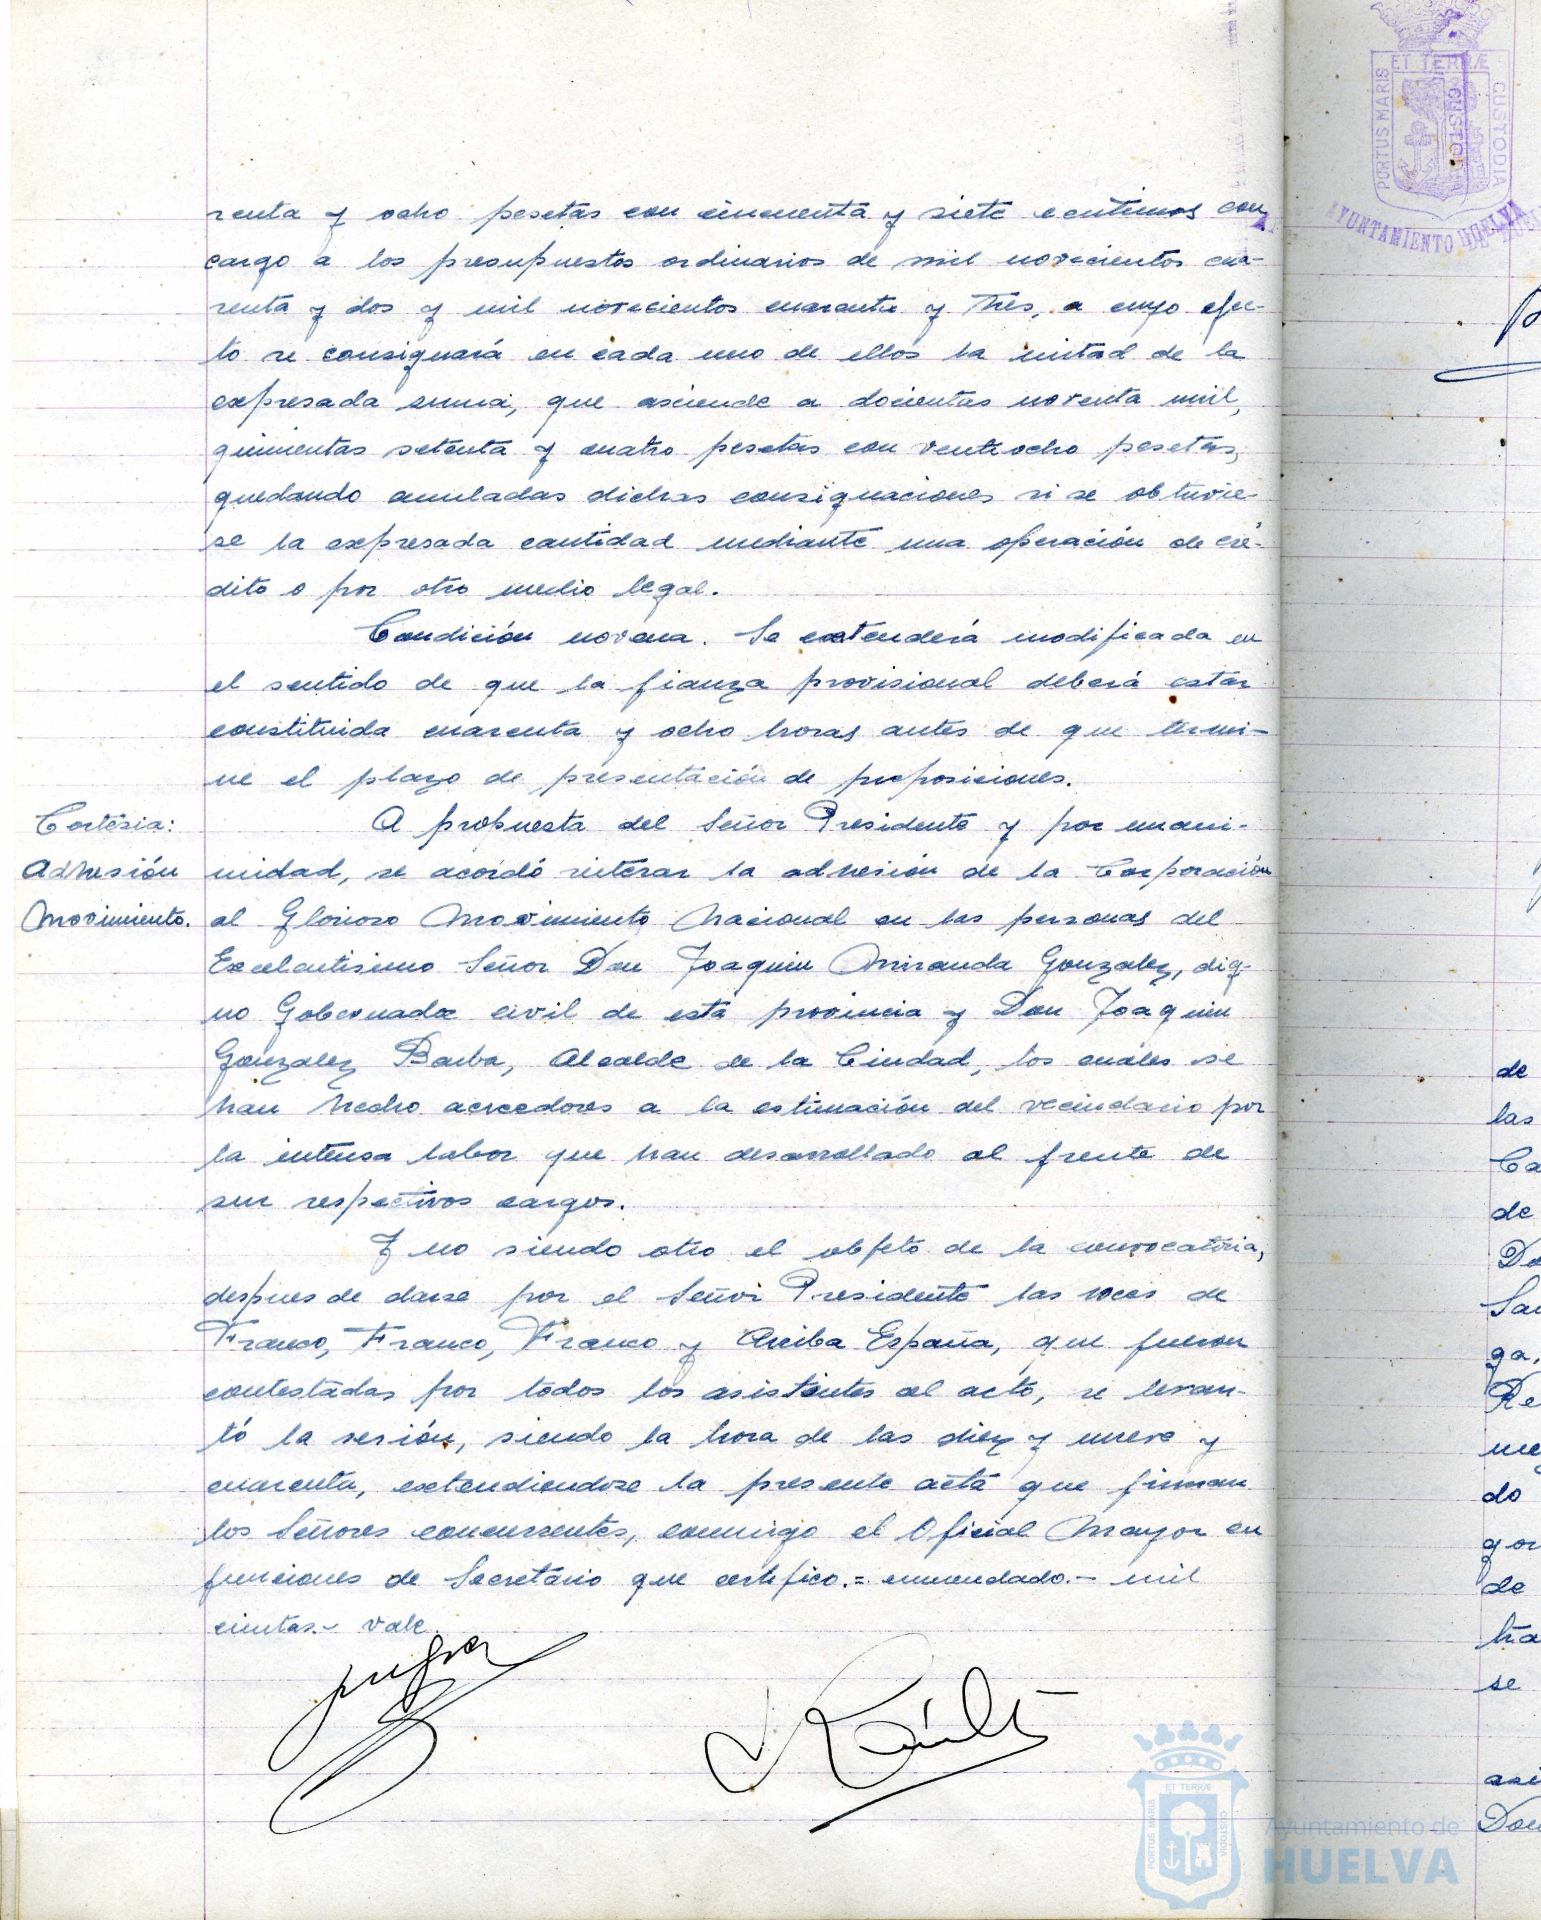 renta y ocho pesetas con cincuenta y siete centimos con
cargo a los presupuestos ordinarios de mil novecientos cua-
renta y dos y mil novecientos cuarenta y tres, a cuyo efec-
to se consignará en cada uno de ellos la mitad de la
expresada suma, que asciende a docientas noventa mil,
quinientas setenta y cuatro pesetas con ventiocho pesetas,
quedando anuladas dichas consignaciones si se obtuvie-
se la expresada cantidad mediante una operación de cré-
dito o por otro medio legal.
Condición novena. Se extenderá modificada en
el sentido de que la fianza provisional deberá estar
constituida cuarenta y ocho horas antes de que termi-
ne el plazo de presentación de proposiciones.
Cortesia:
Adhesión
Movimiento.
A propuesta del Señor Presidente y por unani-
midad, se acordó reiterar la adhesión de la Corporación
al Glorioso Movimiento Nacional en las personas del
Excelentisimo Señor Don Joaquin Miranda Gonzalez, dig-
no Gobernador civil de esta provincia y Don Joaquin
Gonzalez Barba, Alcalde de la Ciudad, los cuales se
han hecho acreedores a la estimación del vecindario por
la intensa labor que han desarrollado al frente de
sur respectivos cargos.
Y no siendo otro el objeto de la convocatoria,
despues de darse por el Señor Presidente las voces de
Franco, Franco, Franco y Arriba España, que fueron
contestadas por todos los asistentes al acto, se levan-
tó la sesión, siendo la hora de las diez y nueve y
cuarenta, extendiendose la presente acta que firman
los Señores concurrentes, conmigo el Oficial Mayor en
funciones de Secretario que certifico.= enmendado.- mil
cientas.- vale.
PORTUS MARIS ET TERRÆ CUSTODIA
AYUNTAMIENTO HUELVA
de
las
Ca
de
Do
San
ga,
Re
me
do
gor
de
tra
se
asi
Don
PORTUS MARIS ET TERRÆ CUSTODIA
Ayuntamiento de
HUELVA